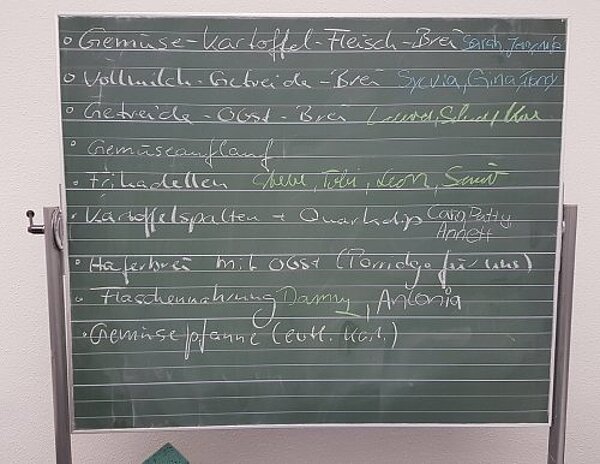 Gemüse-Kartoffel-Fleisch-Brei Sarah,
Vollmilch-Getreide-Brei Sylvia, Gina, Jenny
Getreide-Obst-Brei
Gemüseauflauf
Frikadellen Tobi, Leon,
Kartoffelspalten + Quarkdip Caro, Patty,
Annett
Haferbrei mit Obst (Porridge für uns)
Flaschennahrung Danny, Antonia
Gemüsepfanne (evtl. Kart.)